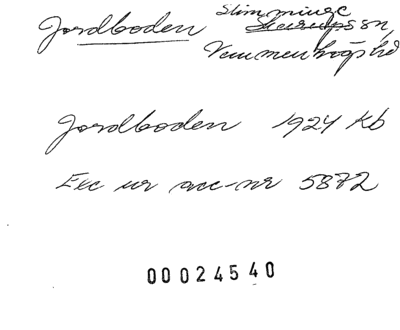 Jordboden Slimminge
Skurups sn,
Vemmenhögs hd
Jordboden 1924 Kb
Exc ur acc-nr 5872
00024540